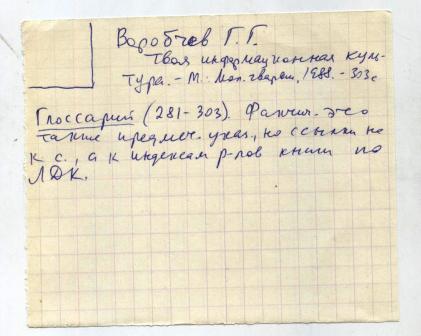 Воробьев Г.Г.
Твоя информационная куль-
тура. - М.: Мол. гвардия, 1988. - 303 с
Глоссарий (281-303). Фактич. это
также предмеч. указ., но ссылки не
к с., а к индексам р-лов книги по
ЛДК.